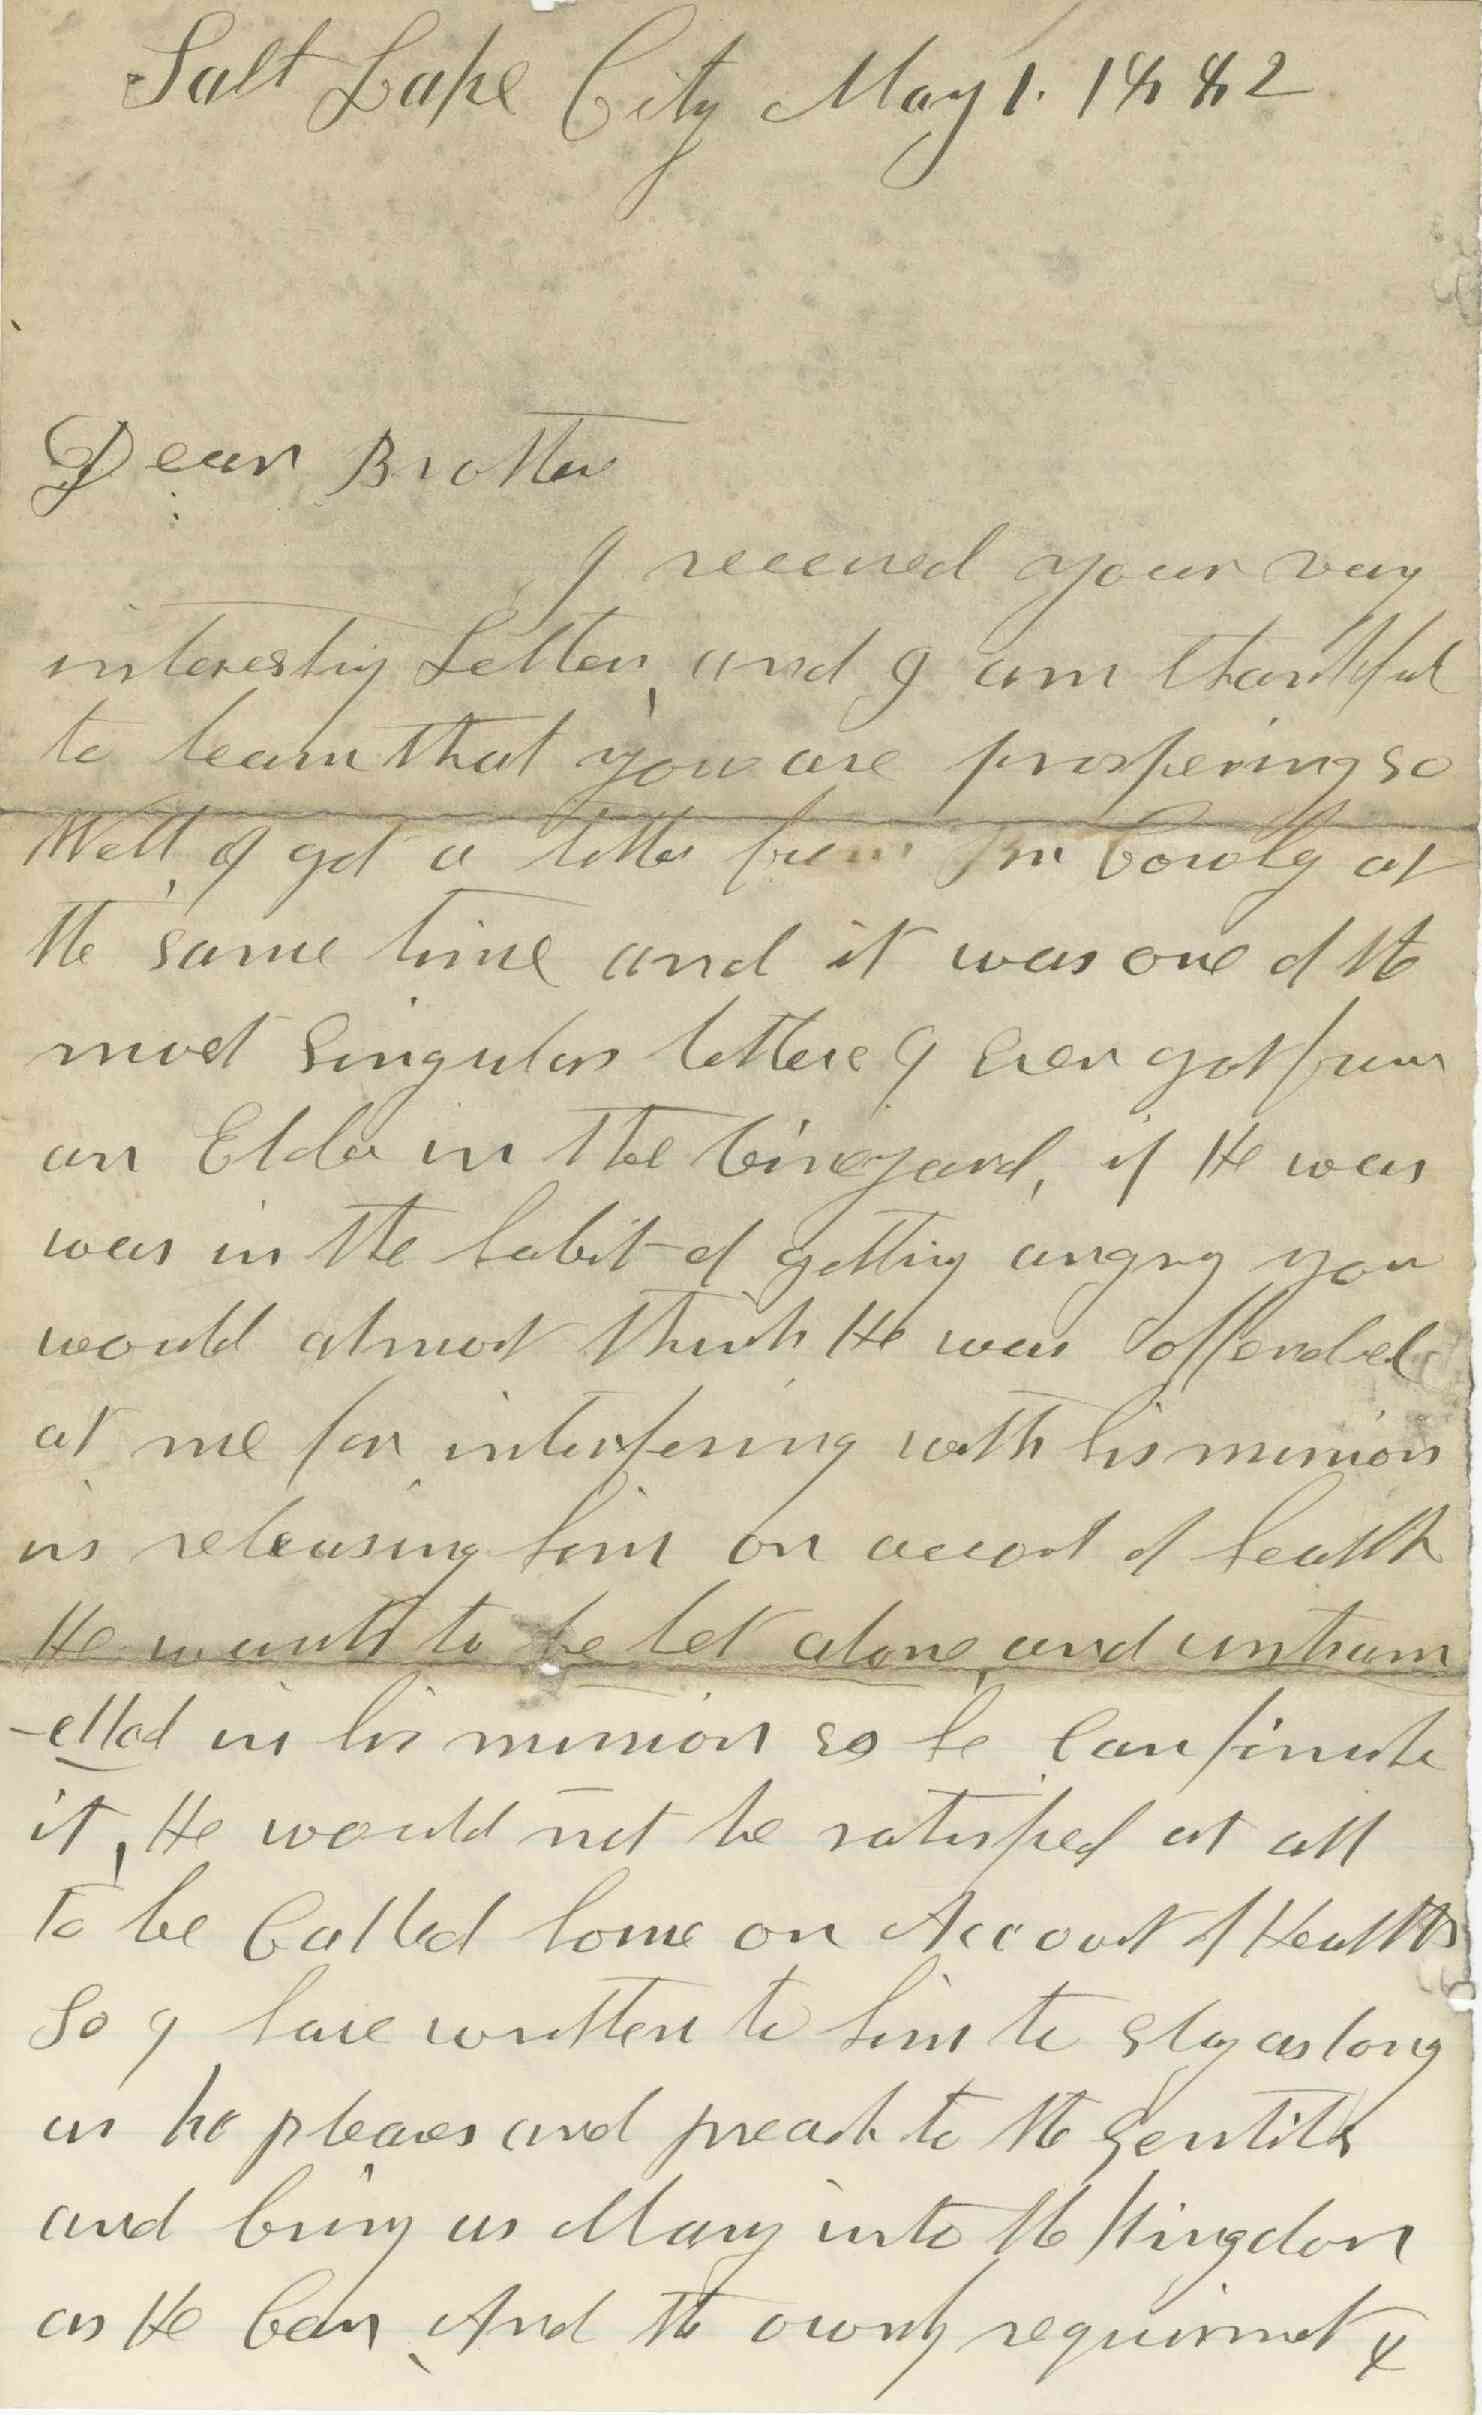 Salt Lake City May 1. 1882
Dear Brother
I received your very
interesting Letter, and I am thankful
to learn that you are prospering so
Well, I got a letter from Bro Cowley at
the same time and it was one of the
most singular letters I Ever got from
an Elder in the Vineyard, if He was
was in the habit of getting angry you
would almost think He was offended
at me for interfering with his mission
in releasing him on account of health
He wants to be let alone, and untram
-elled in his mission so he Can finish
it, He would not be satisfied at all
To be Called home on Account of Health
So I have written to him to stay as long
as he pleases and preach to the Gentiles
and bring as Many into the Kingdom
as He Can, And the ownly requirment I